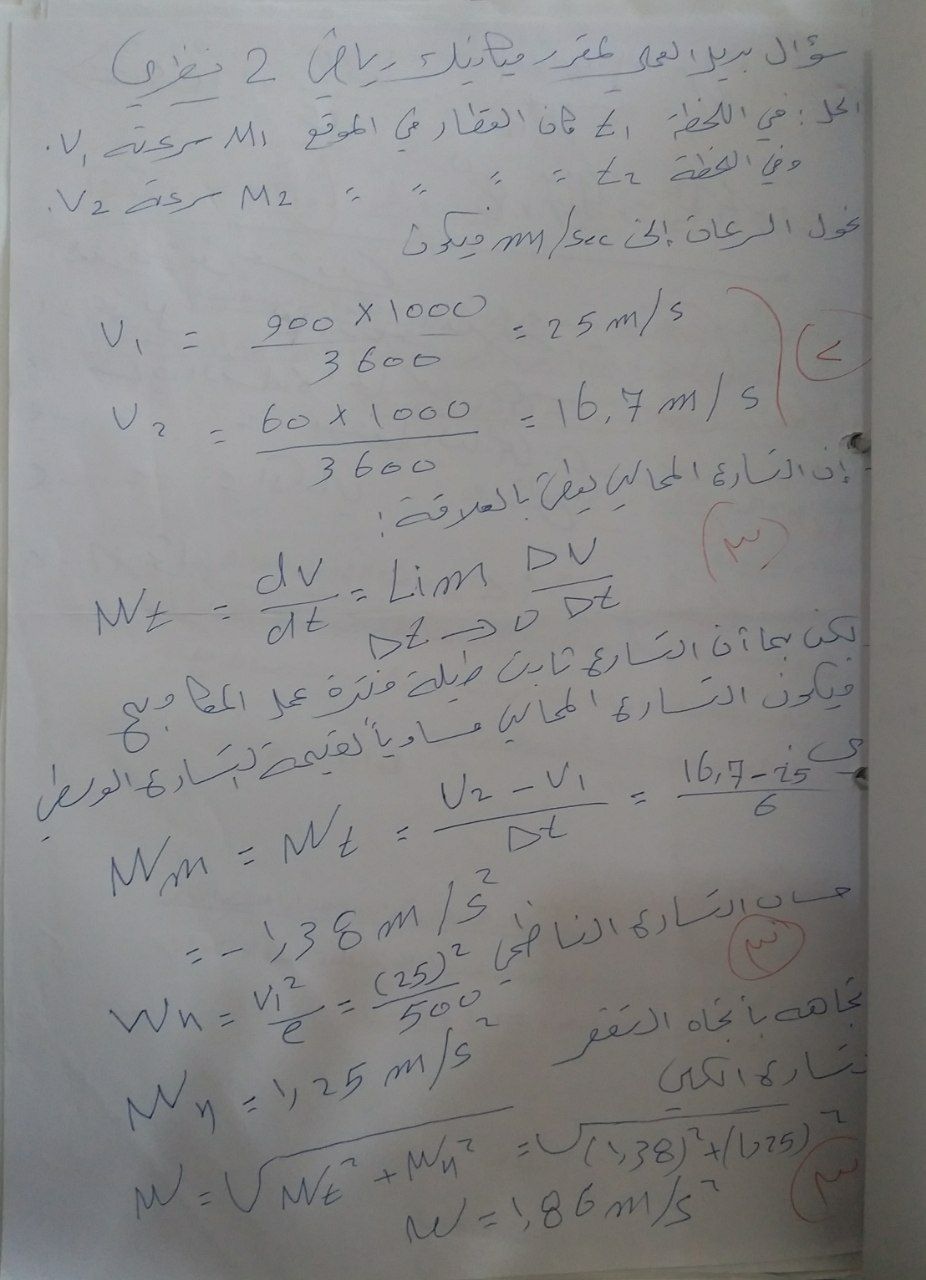 سؤال بديل العملي لمقرر ميكانيك رياض 2 نظري
الحل: في اللحظة t1 كان القطار في الموقع M1 سرعته V1.
وفي اللحظة t2 = = = = M2 سرعته V2.
نحول السرعات إلى m/sec فيكون
V1 = 900 × 1000 / 3600 = 25 m/s
٢
V2 = 60 × 1000 / 3600 = 16,7 m/s
إن التسارع المماسي يعطى بالعلاقة:
٣
Wt = dV/dt = Lim Δt→0 ΔV/Δt
لكن بما أن التسارع ثابت طيلة فترة عمل المكابح
فيكون التسارع المماسي مساوياً لقيمة التسارع الوسطي
Wm = Wt = V2 - V1 / Δt = 16,7 - 25 / 6
= - 1,38 m/s²
حساب التسارع الناظمي
٣
Wn = V1²/e = (25)²/500
تجاهه بأتجاه التقعر
Wn = 1,25 m/s²
تسارع الكلي
W = √Wt² + Wn² = √(1,38)² + (1,25)²
٣
W = 1,86 m/s²